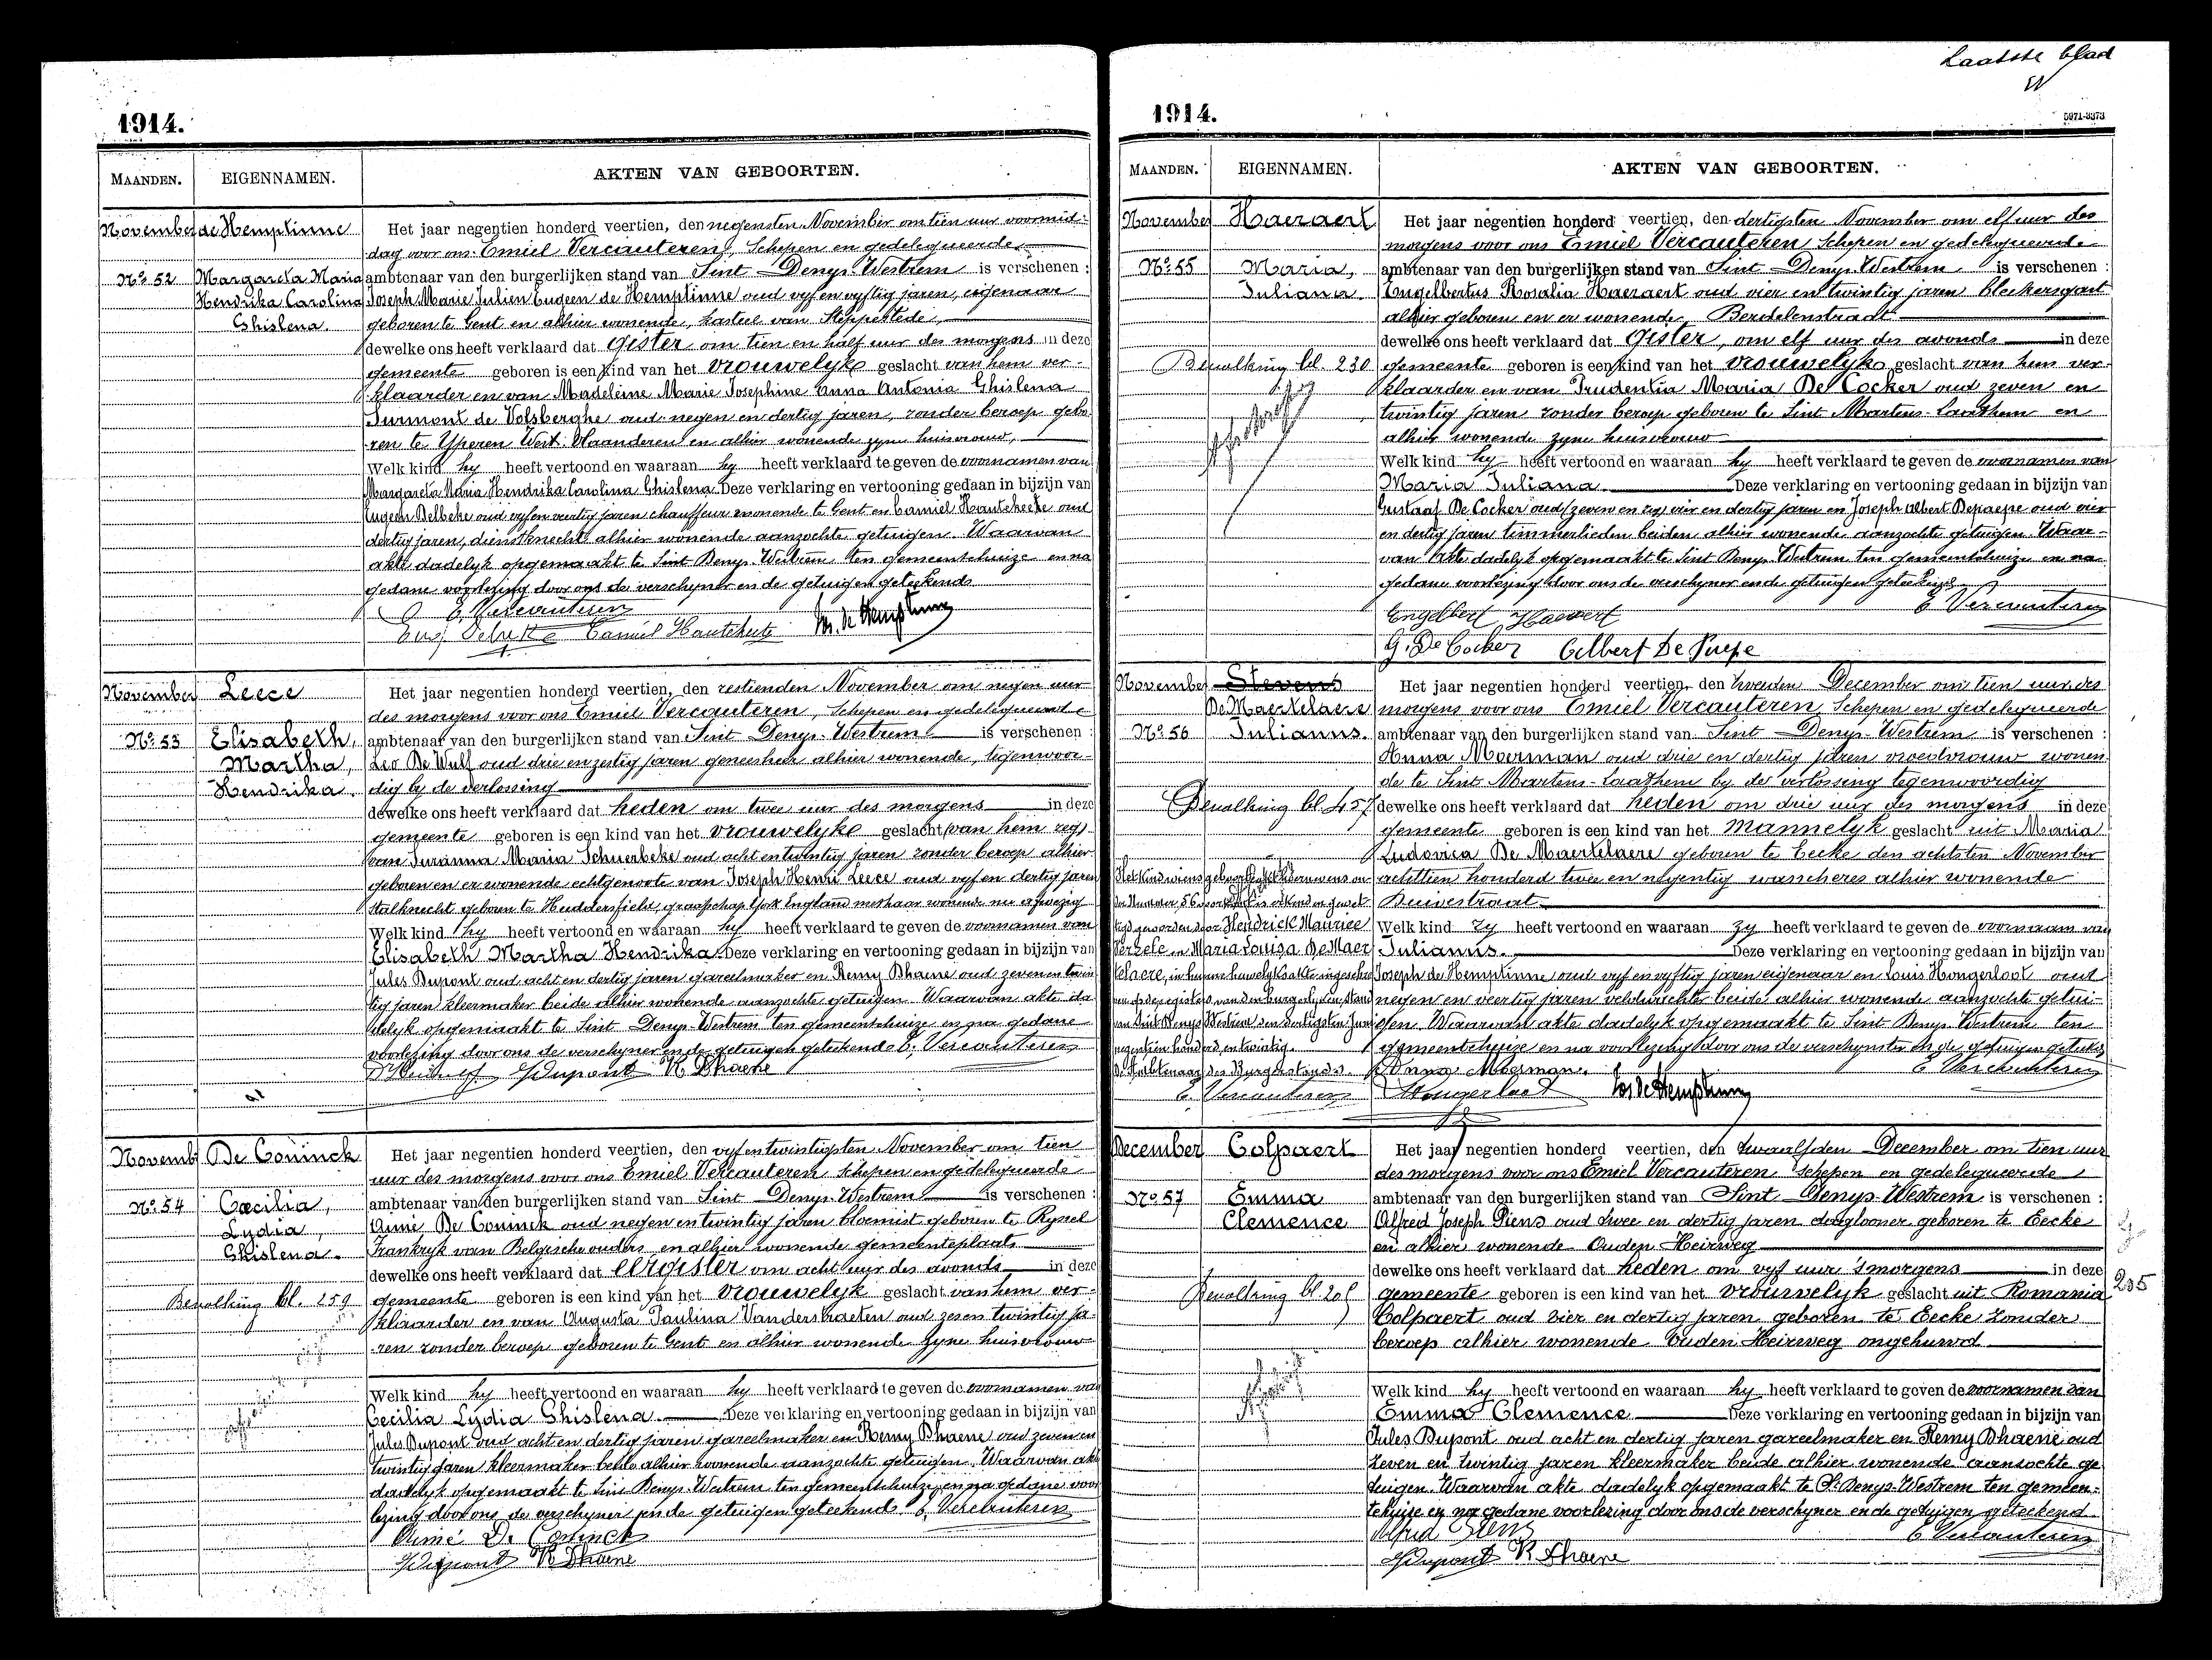 1914.
MAANDEN. EIGENNAMEN. AKTEN VAN GEBOORTEN.
November de Hemptinne
Nº 52 Margareta Maria
Hendrika Carolina
Ghislena.
Het jaar negentien honderd veertien, den negensten November om tien uur voormid-
dag voor ons Emiel Vercauteren, Schepen en gedelegueerde
ambtenaar van den burgerlijken stand van Sint Denys-Westrem is verschenen :
Joseph Marie Julien Eugeen de Hemptinne oud vyf en vyftig jaren, eigenaar
geboren te Gent en alhier wonende, kasteel van Steppestede,
dewelke ons heeft verklaard dat gister om tien en half uur des morgens in deze
gemeente geboren is een kind van het vrouwelyke geslacht van hem ver-
klaarder en van Madeleine Marie Josephine Anna Antonia Ghislena
Surmont de Volsberghe oud negen en dertig jaren, zonder beroep gebo-
ren te Yperen West-Vlaanderen en alhier wonende zyne huisvrouw,
Welk kind hy heeft vertoond en waaraan hy heeft verklaard te geven de voornamen van
Margareta Maria Hendrika Carolina Ghislena Deze verklaring en vertooning gedaan in bijzijn van
Eugeen Delbeke oud vyf en veertig jaren chauffeur wonende te Gent en Camiel Hautekeete oud
dertig jaren, dienstknecht alhier wonende aanzochte getuigen. Waarvan
akte dadelyk opgemaakt te Sint Denys-Westrem ten gemeentehuize en na
gedane voorlezing door ons de verschyner en de getuigen geteekend.
E. Vercauteren
Eug Delbeke Camiel Hautekeete Jos. de Hemptinne
November Leece
Nº 53 Elisabeth,
Martha,
Hendrika.
Het jaar negentien honderd veertien, den zestienden November om negen uur
des morgens voor ons Emiel Vercauteren, Schepen en gedelegueerde
ambtenaar van den burgerlijken stand van Sint Denys-Westrem is verschenen :
Leo De Wulf oud drie en zestig jaren geneesheer alhier wonende, tegenwoor-
dig by de verlossing
dewelke ons heeft verklaard dat heden om twee uur des morgens in deze
gemeente geboren is een kind van het vrouwelyke geslacht (van hem zeg)
van Suzanna Maria Schuerbeke oud acht en twintig jaren zonder beroep alhier
geboren en er wonende echtgenoote van Joseph Henri Leece oud vyf en dertig jaren
stalknecht geboren te Huddersfield, graafschap York England met haar wonende nu afwezig
Welk kind hy heeft vertoond en waaraan hy heeft verklaard te geven de voornamen van
Elisabeth Martha Hendrika Deze verklaring en vertooning gedaan in bijzijn van
Jules Dupont oud acht en dertig jaren gareelmaker en Remy Dhaene oud zeven en twin-
tig jaren kleermaker beide alhier wonende aanzochte getuigen. Waarvan akte da-
delyk opgemaakt te Sint Denys-Westrem ten gemeentehuize en na gedane
voorlezing door ons de verschyner en de getuigen geteekend. E. Vercauteren
J Dupont R Dhaene
Novemb De Coninck
Nº 54 Cæcilia,
Lydia,
Ghislena.
Bevolking bl. 259
Het jaar negentien honderd veertien, den vyf en twintigsten November om tien
uur des morgens voor ons Emiel Vercauteren, Schepen en gedelegueerde
ambtenaar van den burgerlijken stand van Sint Denys-Westrem is verschenen :
Aimé De Coninck oud negen en twintig jaren bloemist geboren te Ryssel
Frankryk van Belgische ouders en alhier wonende gemeenteplaats
dewelke ons heeft verklaard dat eergister om acht uur des avonds in deze
gemeente geboren is een kind van het vrouwelyk geslacht van hem ver-
klaarder en van Augusta Paulina Vanderstraeten oud zes en twintig ja-
ren zonder beroep geboren te Gent en alhier wonende zyne huisvrouw
Welk kind hy heeft vertoond en waaraan hy heeft verklaard te geven de voornamen van
Cecilia Lydia Ghislena Deze verklaring en vertooning gedaan in bijzijn van
Jules Dupont oud acht en dertig jaren gareelmaker en Remy Dhaene oud zeven en
twintig jaren kleermaker beide alhier wonende aanzochte getuigen. Waarvan akte
dadelyk opgemaakt te Sint Denys-Westrem ten gemeentehuize en na gedane voor
lezing door ons de verschyner en de getuigen geteekend. E. Vercauteren
Aimé De Coninck
J Dupont R Dhaene
Laatste blad
1914.
5971-3373
MAANDEN. EIGENNAMEN. AKTEN VAN GEBOORTEN.
November Haeraert
Nº 55 Maria,
Juliana.
Bevolking bl. 230
Het jaar negentien honderd veertien, den dertigsten November om elf uur des
morgens voor ons Emiel Vercauteren Schepen en gedelegueerde
ambtenaar van den burgerlijken stand van Sint Denys-Westrem is verschenen :
Engelbertus Rosalia Haeraert oud vier en twintig jaren bleekersgast
alhier geboren en er wonende, Berdelenstraat
dewelke ons heeft verklaard dat Gister, om elf uur des avonds in deze
gemeente geboren is een kind van het vrouwelyke geslacht van hem ver-
klaarder en van Prudentia Maria De Cocker oud zeven en
twintig jaren zonder beroep geboren te Sint Martens-Laathem en
alhier wonende zyne huisvrouw
Welk kind hy heeft vertoond en waaraan hy heeft verklaard te geven de voornamen van
Maria Juliana. Deze verklaring en vertooning gedaan in bijzijn van
Gustaaf De Cocker oud (zeven en zeg) vier en dertig jaren en Joseph Albert Depaepe oud vier
en dertig jaren timmerlieden beiden alhier wonende aanzochte getuigen. Waar-
van akte dadelyk opgemaakt te Sint Denys-Westrem ten gemeentehuize en na
gedane voorlezing door ons de verschyner en de getuigen geteekend.
Engelbert Haeraert E Vercauteren
G. De Cocker Albert De Paepe
November Stevens
De Maertelaere
Nº 56 Julianus.
Bevolking bl. 457
Het kind wiens geboorteakte hiernevens on-
der Nummer 56 voorkomt is erkend en gewet-
tigd geworden door Hendrick Maurice
Verzele en Maria Louisa De Maer
telaere, in hunne huwelyksakte ingeschre
ven op de registers van den burgerlyken stand
van Sint Denys Westrem den dertigsten Juni
negentien honderd en twintig.
De Ambtenaar des Burgerstands.
E. Vercauteren
Het jaar negentien honderd veertien, den tweeden December om tien uur des
morgens voor ons Emiel Vercauteren, Schepen en gedelegueerde
ambtenaar van den burgerlijken stand van Sint Denys-Westrem is verschenen :
Anna Moerman oud drie en dertig jaren vroedvrouw wonen
de te Sint Martens-Laathem by de verlossing tegenwoordig
dewelke ons heeft verklaard dat heden om drie uur des morgens in deze
gemeente geboren is een kind van het mannelyk geslacht uit Maria
Ludovica De Maertelaere geboren te Eecke den achtsten November
achttien honderd twee en negentig wascheres alhier wonende
Beuvestraat
Welk kind zy heeft vertoond en waaraan zy heeft verklaard te geven de voornaam van
Julianus. Deze verklaring en vertooning gedaan in bijzijn van
Joseph de Hemptinne oud vyf en vyftig jaren eigenaar en Louis Hongerloot oud
negen en veertig jaren veldwachter beide alhier wonende aanzochte getui-
gen. Waarvan akte dadelyk opgemaakt te Sint Denys-Westrem ten
gemeentehuize en na voorlezing door ons de verschynster en de getuigen geteek.
Anna Moerman. E Vercauteren
Hongerloot Jos de Hemptinne
December Colpaert
Nº 57 Emma
Clemence
Bevolking bl 205
Het jaar negentien honderd veertien, den twaalfden December om tien uur
des morgens voor ons Emiel Vercauteren Schepen en gedelegueerde
ambtenaar van den burgerlijken stand van Sint Denys-Westrem is verschenen :
Alfred Joseph Piens oud twee en dertig jaren daglooner geboren te Eecke
en alhier wonende Ouden Heirweg
dewelke ons heeft verklaard dat heden om vyf uur 's morgens in deze
gemeente geboren is een kind van het vrouwelyk geslacht uit Romania 205
Colpaert oud vier en dertig jaren geboren te Eecke zonder
beroep alhier wonende Ouden Heirweg ongehuwd
Welk kind hy heeft vertoond en waaraan hy heeft verklaard te geven de voornamen van
Emma Clemence Deze verklaring en vertooning gedaan in bijzijn van
Jules Dupont oud acht en dertig jaren gareelmaker en Remy Dhaene oud
zeven en twintig jaren kleermaker beide alhier wonende aanzochte ge
tuigen. Waarvan akte dadelyk opgemaakt te St Denys-Westrem ten gemeen-
tehuize en na gedane voorlezing door ons de verschyner en de getuigen geteekend.
Alfred Piens E Vercauteren
J Dupont R Dhaene